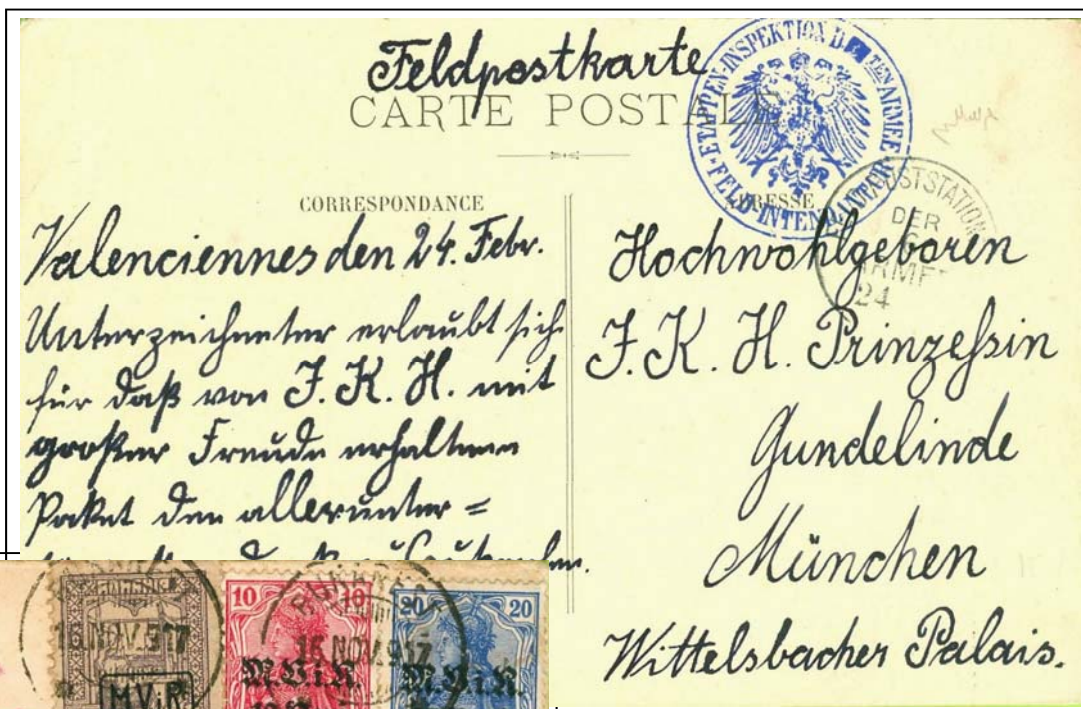 Feldpostkarte
CARTE POSTALE
ETAPPEN-INSPEKTION DER TEN ARMEE
FELD-INTENDANTUR
STSTATION
DER
ARMEE
24
CORRESPONDANCE
ADRESSE
Valenciennes den 24. Febr.
Unterzeichneter erlaubt sich
für daß von J. K. H. mit
großer Freude erhaltenen
Paket den allerunter=
Hochwohlgeboren
J. K. H. Prinzeßin
Gundelinde
München
Wittelsbacher Palais.
16 NOV. 917
M.V.i.R.
10 10
M.V.i.R.
16 NOV. 917
20 20
M.V.i.R.